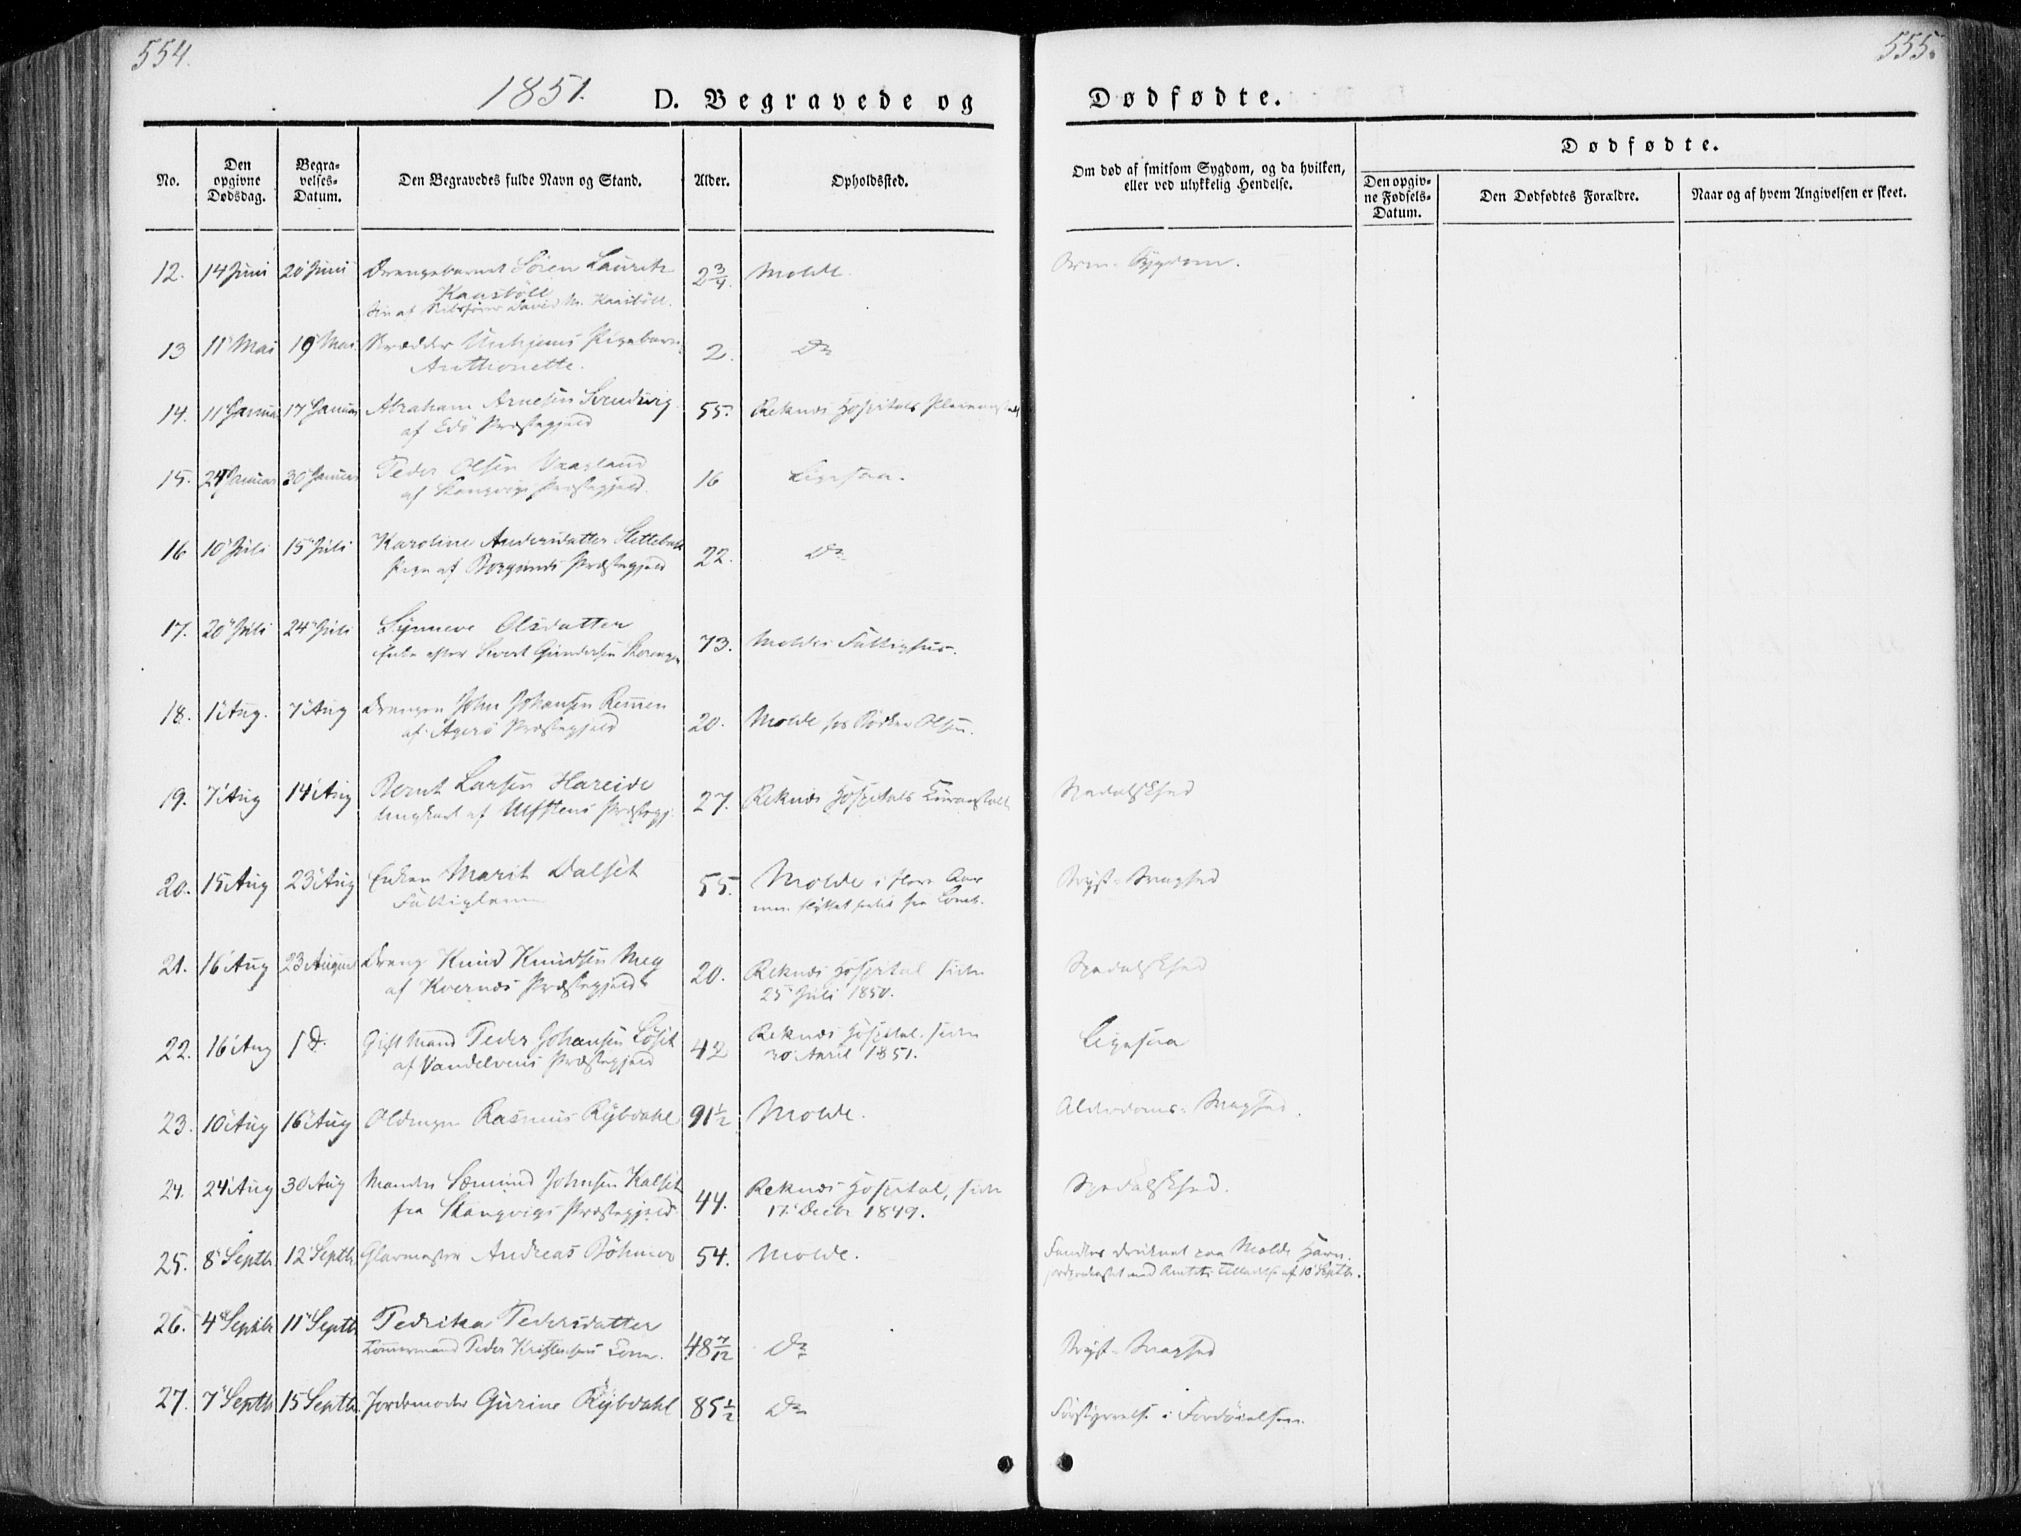 554.
555.
1851.
D. Begravede og
Dødfødte.
No.
Den opgivne Dødsdag.
Begravelses-Datum.
Den Begravedes fulde Navn og Stand.
Alder.
Opholdssted.
Om død af smitsom Sygdom, og da hvilken, eller ved ulykkelig Hendelse.
Dødfødte.
Den opgivne Fødsels-Datum.
Den Dødfødtes Forældre.
Naar og af hvem Angivelsen er skeet.
12. 14 Juni 20 Juni Drengebarnet Søren Lauritz 2 3/4. Molde. Orm-Sygdom.
Kaasbøll
Søn af David M. Kaasbøll.
13 11 Mai 19 Mai Skrædder Pigebarn 2. Do
Anthonette.
14. 11 Januar 17 Januar Abraham Arnesen 55. Reknæs Hospitals Pleieanstalt
af Edø Præstegjeld
15. 24 Januar 30 Januar Peder Olsen Vaagland 16 Ligesaa.
af Stangvigs Præstegjeld.
16 10 Juli 15 Juli Karoline Andersdatter Slettebak 22. Do
Pige af Borgunds Præstegjeld
17. 20 Juli 24 Juli Synneve Olsdatter 73. Moldes Fattighus.
Enke efter Sivert Gundersen
18. 1 Aug. 7 Aug Drengen John Johansen Remen 20. Molde hos Bødker Olsen.
af Agerø Præstegjeld
19. 7 Aug 14 Aug Bernt Larsen Hareide 27. Reknæs Hospitals Curanstalt Spedalskhed
Ungkarl af Ulfstens Præstegj.
20. 15 Aug 23 Aug Enken Marit Dalset 55. Molde i flere Aar Bryst-Svaghed
Fattiglem
21. 16 Aug 23 August Dreng Knud Knudsen Meg 20. Reknæs Hospital siden Spedalskhed
af Kvernæs Præstegjeld 25 Juli 1850.
22. 16 Aug D. Gift Mand Peder Johansen Løset 42 Reknæs Hospital siden Ligesaa
af Vandelvens Præstegjeld 30 April 1851.
23. 10 Aug 16 Aug Oldingen Rasmus Rybdahl 91 1/2 Molde. Alderdoms-Svaghed.
24. 24 Aug 30 Aug Manden Sæmund Johnsen Kalset 44. Reknæs Hospital, siden Spedalskhed.
fra Stangvigs Præstegjeld 17 Decbr 1849.
25. 8 Septb. 12 Septb. Glarmester Andreas Bøhmer 54. Molde. Funden druknet paa Molde Havn.
med Amtets Tilladelse af 10 Septbr.
26. 4 Septbr 11 Septb Pedrika Pedersdatter 48 7/12 Do Bryst-Svaghed
Tømmermand Peder Kristensens Kone.
27. 7 Septb 15 Septb. Jordemoder Gurine Rybdahl 85 1/2 Do Forstyrrelse i Fordøielsen.